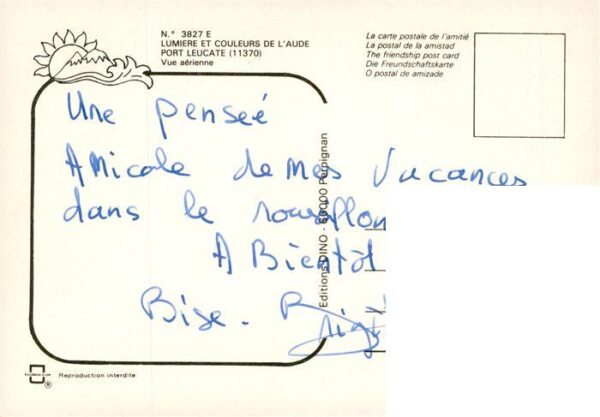 N.° 3827 E
LUMIERE ET COULEURS DE L'AUDE
PORT LEUCATE (11370)
Vue aérienne
La carte postale de l'amitié
La postal de la amistad
The friendship post card
Die Freundschaftskarte
O postal de amizade
Une penseé
AMicale de mes Vacances
dans le roussillon
A Bientôt
Bise.
Editions DINO - 66000 Perpignan
Reproduction interdite